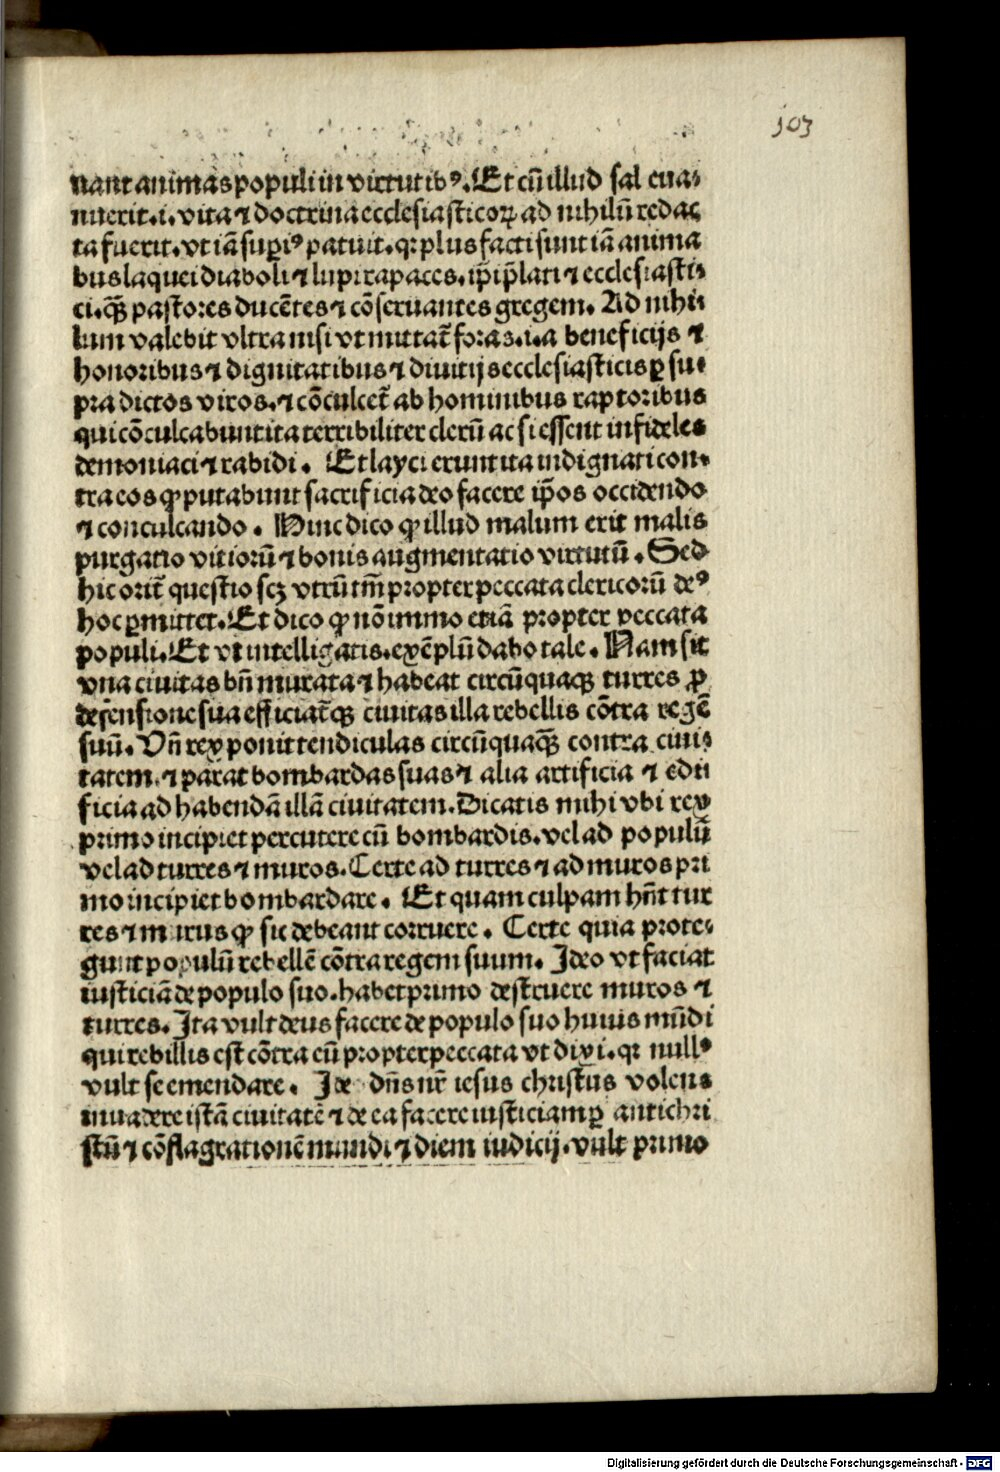 103
nant animas populi in virtutibꝰ. Et cū illud sal eua⸗
nuerit .i. vita ⁊ doctrina ecclesiasticoꝝ ad nihilū redac
ta fuerit. vt iā supiꝰ patuit. qꝛ plus facti sunt iā anima
bus laquei diaboli ⁊ lupi rapaces. ip̄i p̄lati ⁊ ecclesiasti⸗
ci. qꝫ̄ pastores ducētes ⁊ cōseruantes gregem. Ad nihi
lum valebit vltra nisi vt mittat᷑ foras .i. a beneficijs ⁊
honoribus ⁊ dignitatibus ⁊ diuitijs ecclesiasticis ꝑ su⸗
pra dictos viros. ⁊ cōculcet᷑ ab hominibus raptoribus
qui cōculcabunt ita terribiliter clerū ac si essent infideles
demoniaci ⁊ rabidi. Et layci erunt ita indignati con⸗
tra eos ꝙ putabunt sacrificia deo facere ip̄os occidendo
⁊ conculcando. Hinc dico ꝙ illud malum erit malis
purgatio vitiorū ⁊ bonis augmentatio virtutū. Sed
hic orit᷑ questio scꝫ vtrū tm̄ propter peccata clericorū deꝰ
hoc ꝑmittet. Et dico ꝙ nō immo etiā propter peccata
populi. Et vt intelligatis. exēplū dabo tale. Nam sit
vna ciuitas bn̄ murata ⁊ habeat circūquaqꝫ turres ꝓ
defensione sua efficiat᷑qꝫ ciuitas illa rebellis cōtra regē
suū. Vn̄ rex ponit tendiculas circūquaqꝫ contra ciui⸗
tatem. ⁊ parat bombardas suas ⁊ alia artificia ⁊ edi
ficia ad habendā illā ciuitatem. Dicatis mihi vbi rex
primo incipiet percutere cū bombardis. vel ad populū
vel ad turres ⁊ muros. Certe ad turres ⁊ ad muros pri
mo incipiet bombardare. Et quam culpam hn̄t tur
res ⁊ murus ꝙ sic debeant corruere. Certe quia prote⸗
gunt populū rebellē cōtra regem suum. Ideo vt faciat
iusticiā de populo suo. habet primo destruere muros ⁊
turres. Ita vult deus facere de populo suo huius mūdi
qui rebillis est cōtra eū propter peccata vt dixi. qꝛ nullꝰ
vult se emendare. Ide dn̄s nr̄ iesus christus volens
inuadere istā ciuitatē ⁊ de ea facere iusticiam ꝑ antichri
stū ⁊ cōflagrationē mundi ⁊ diem iudicij. vult primo
Digitalisierung gefördert durch die Deutsche Forschungsgemeinschaft - DFG